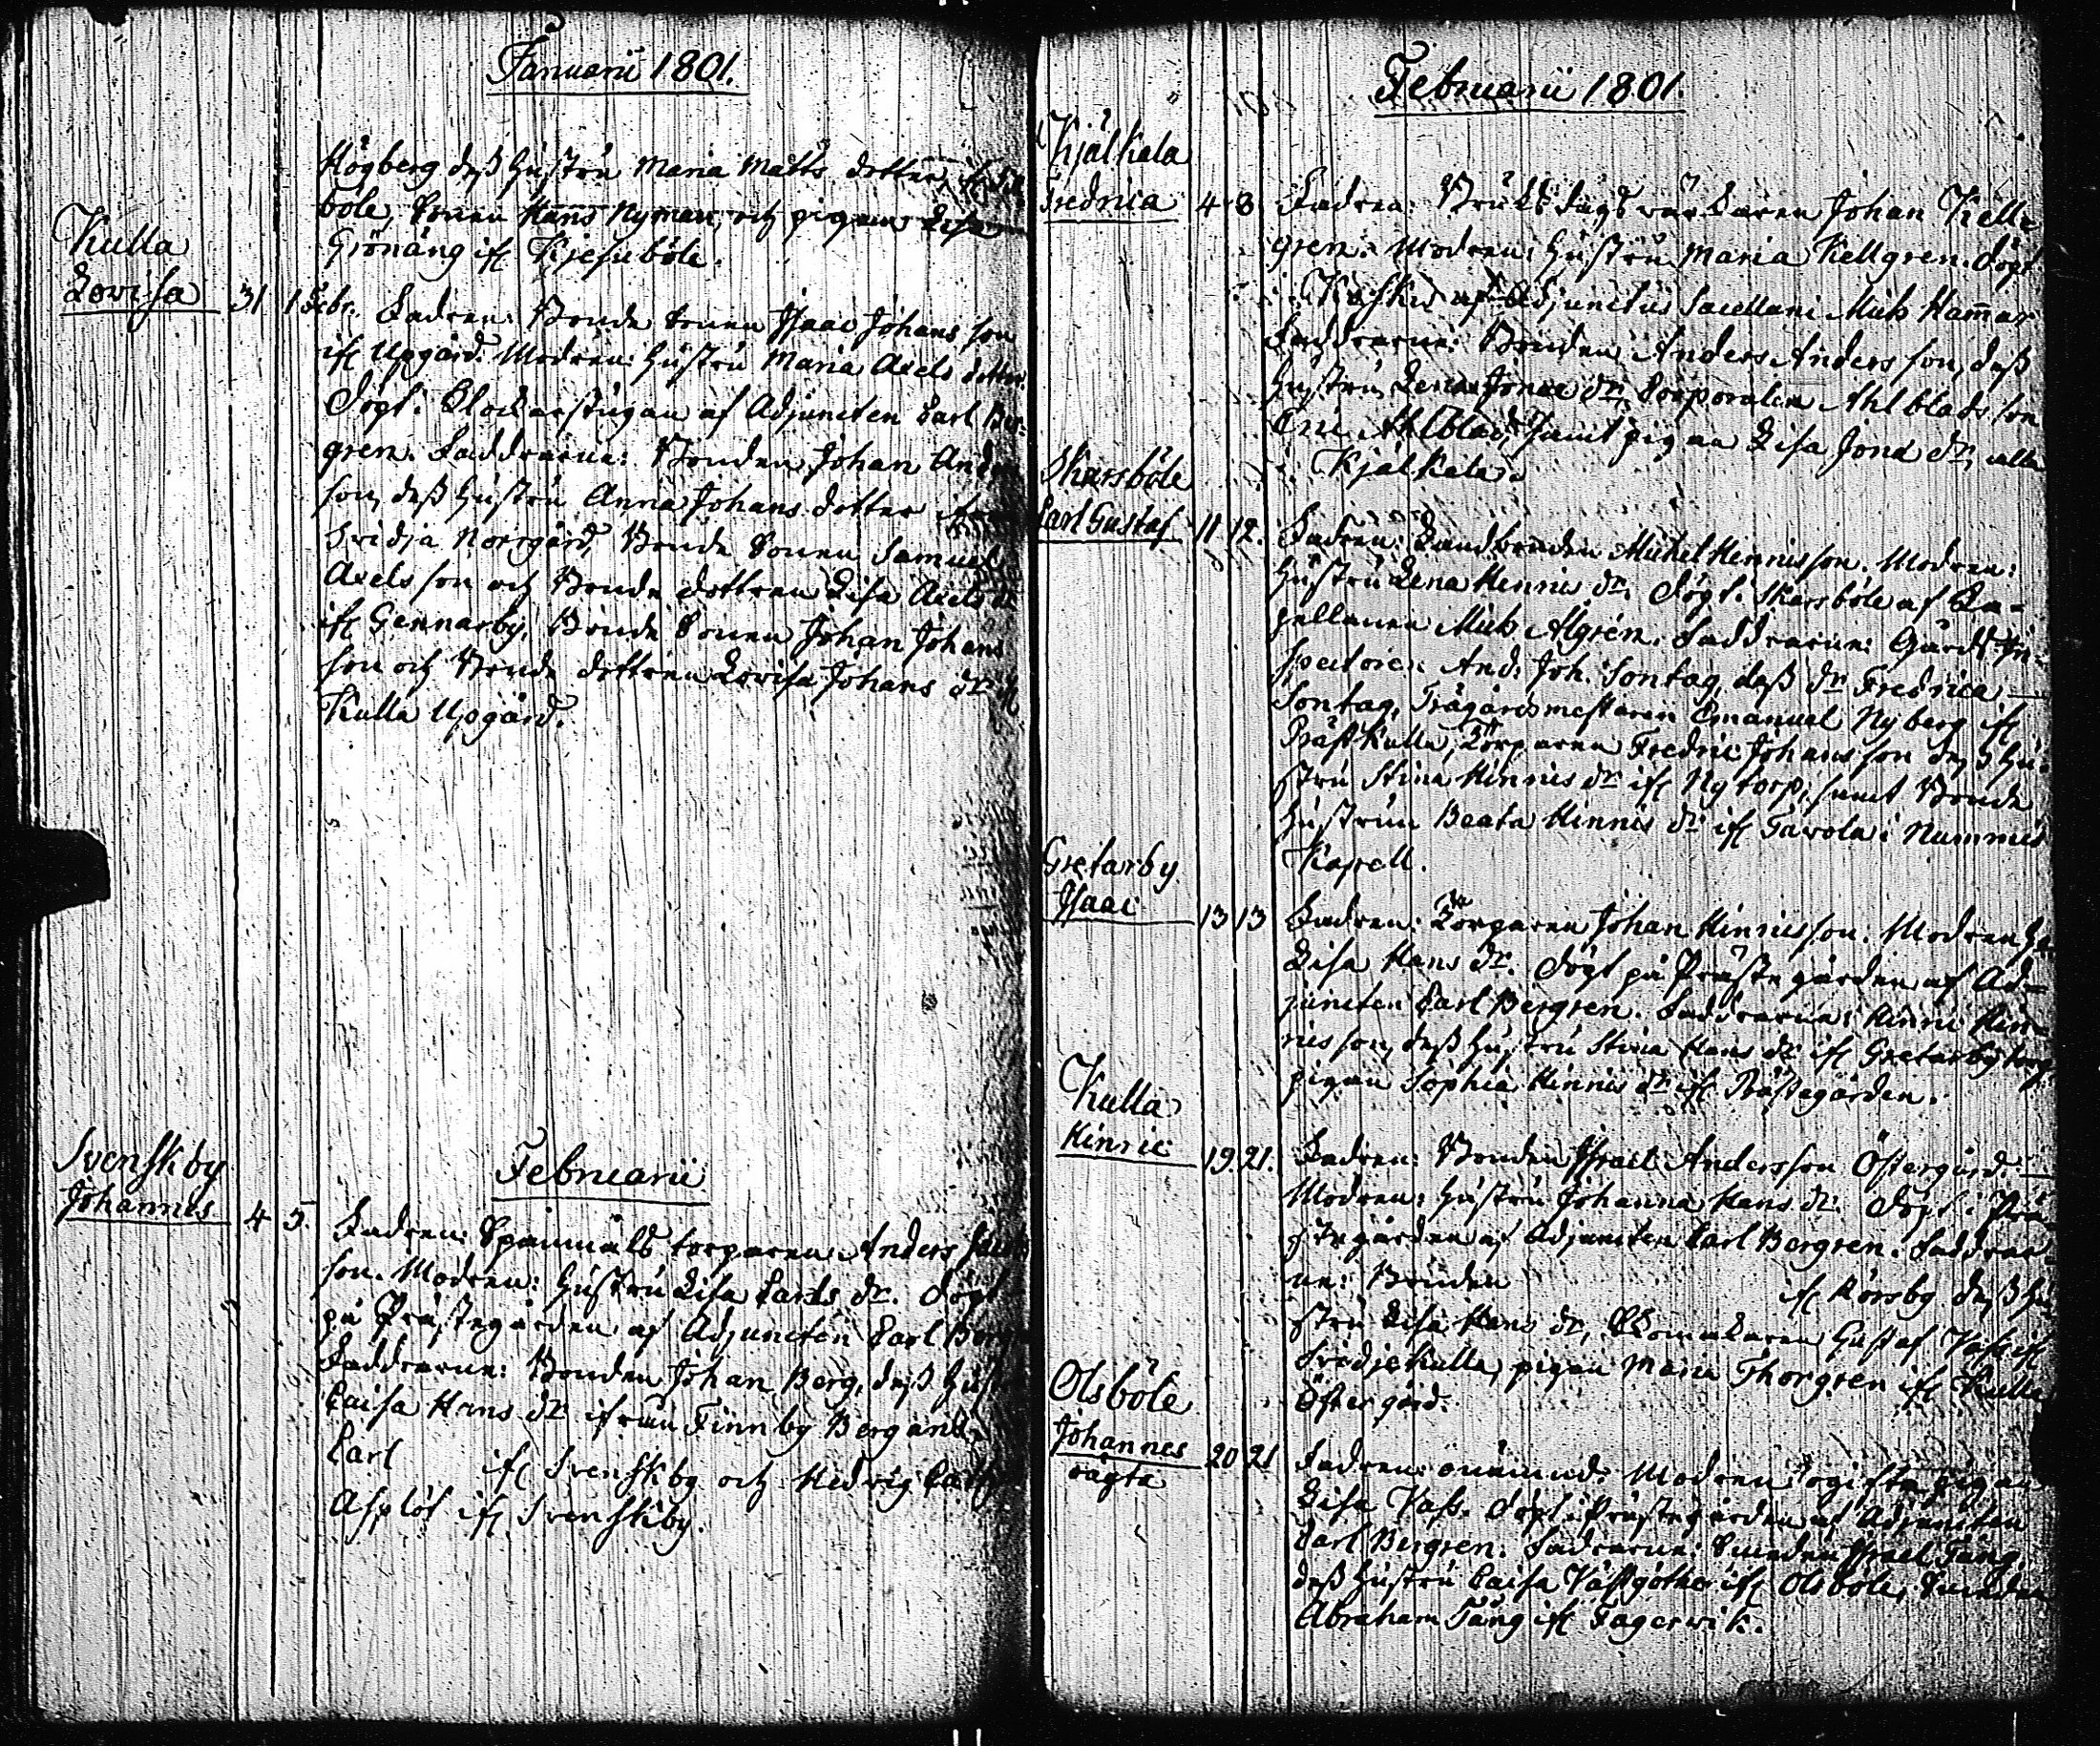 Januarii 1801.
Högberg dess hustru Maria Matts dotter, ifr
bole, Sonen Hans Nyman, och pigan Lisa
Grönäng ifr Kjesuböle.
Kulla
Lovisa 31 1 Febr. Fadren: Bonde Sonen Isaac Johans son
ifr Upgård. Modren: hustru Maria Axels dotter.
Döpt i Klockarstugan af Adjuncten Carl Ber-
gren. Faddrarne: Bonden Johan Anders
son, dess hustru Anna Johans dotter ifrån
Svidja Norrgård, Bonde Sonen Samuel
Axels son och Bonde dottren Lisa Axels dr
ifr Gennarby, Bonde Sonen Johan Johans
son och Bonde dottren Lovisa Johans dr ifr
Kulla Upgård.
Februarii
Svenskby
Johannes 4 5. Fadren: Spanmåls torparen Anders
son. Modren: hustru Lisa Carls dr. Döpt
på Prästegården af Adjuncten Carl Berg
Faddrarne: Bonden Johan Berg, dess hust
Caisa Hans dr ifrån Finnby Bergans
Carl ifr Svenskby och Hedvig
Asplöf ifr Svenskby.
Februarii 1801.
Kjälkala
Fredrica 4 8 Fadren: Bruks Johan Kell-
gren. Modren: hustru Maria Kellgren. Döpt
i Koskis af Adjunctus Sacellani Mich Hammar
Faddrarne: Bonden Anders Anders son, dess
hustru Lena Jonae dr, Corporalen Ahlblads son
Eric Ahlblad, samt pigan Lisa Jona dr, alla
i Kjälkala.
Skarsböle
Carl Gustaf 11 12. Fadren: Landbonden Michel Henrisson. Modren:
hustru Lena Henris dr. Döpt i Skarsböle af Ca-
pellanen Mich Algren. Faddrarne: Gårds In-
spectoren And: Joh. Sontag, dess dr Fredrica
Sontag, Trägårdsmestaren Emanuel Nyberg ifr
Präst Kulla, Torparen Fredric Johans son dess hu-
stru Stina Hinrics dr ifr Nytorp, samt Bonde
hustrun Beata Hinrics dr ifr Tavola i Nummis
Kapell.
Gretarby
Isaac 13 13 Fadren: Torparen Johan Hinricsson. Modren hu
Lisa Hans dr. Döpt på Prästegården af Ad-
juncten Carl Bergren. Faddrarne: Hinric Hin-
rics son, dess hustru Stina Hans dr ifr Gretarby torp
pigan Sophia Hinrics dr ifr Prästegården.
Kulla
Hinric 19. 21. Fadren: Bonden Israel Andersson Östergård
Modren: hustru Johanna Hans dr. Döpt i Prä-
stegården af Adjuncten Carl Bergren. Faddrar
ne: Bonden ifr Rörsby dess hu
stru Lisa Hans dr, Gustaf ifr
Svidja Kulla, pigan Maria Thorgren ifr Kulla
Östergård.
Olsböle
Johannes
oägta 20 21 Fadren: onämnd. Modren ogifta pigan
Lisa Vass. Döpt i Prästegården af Adjuncten
Carl Bergren. Faddrarne: Smeden Israel Tång
dess hustru Caisa Västgöthe ifr Olsböle, Smeden
Abraham Tång ifr Fagervik.